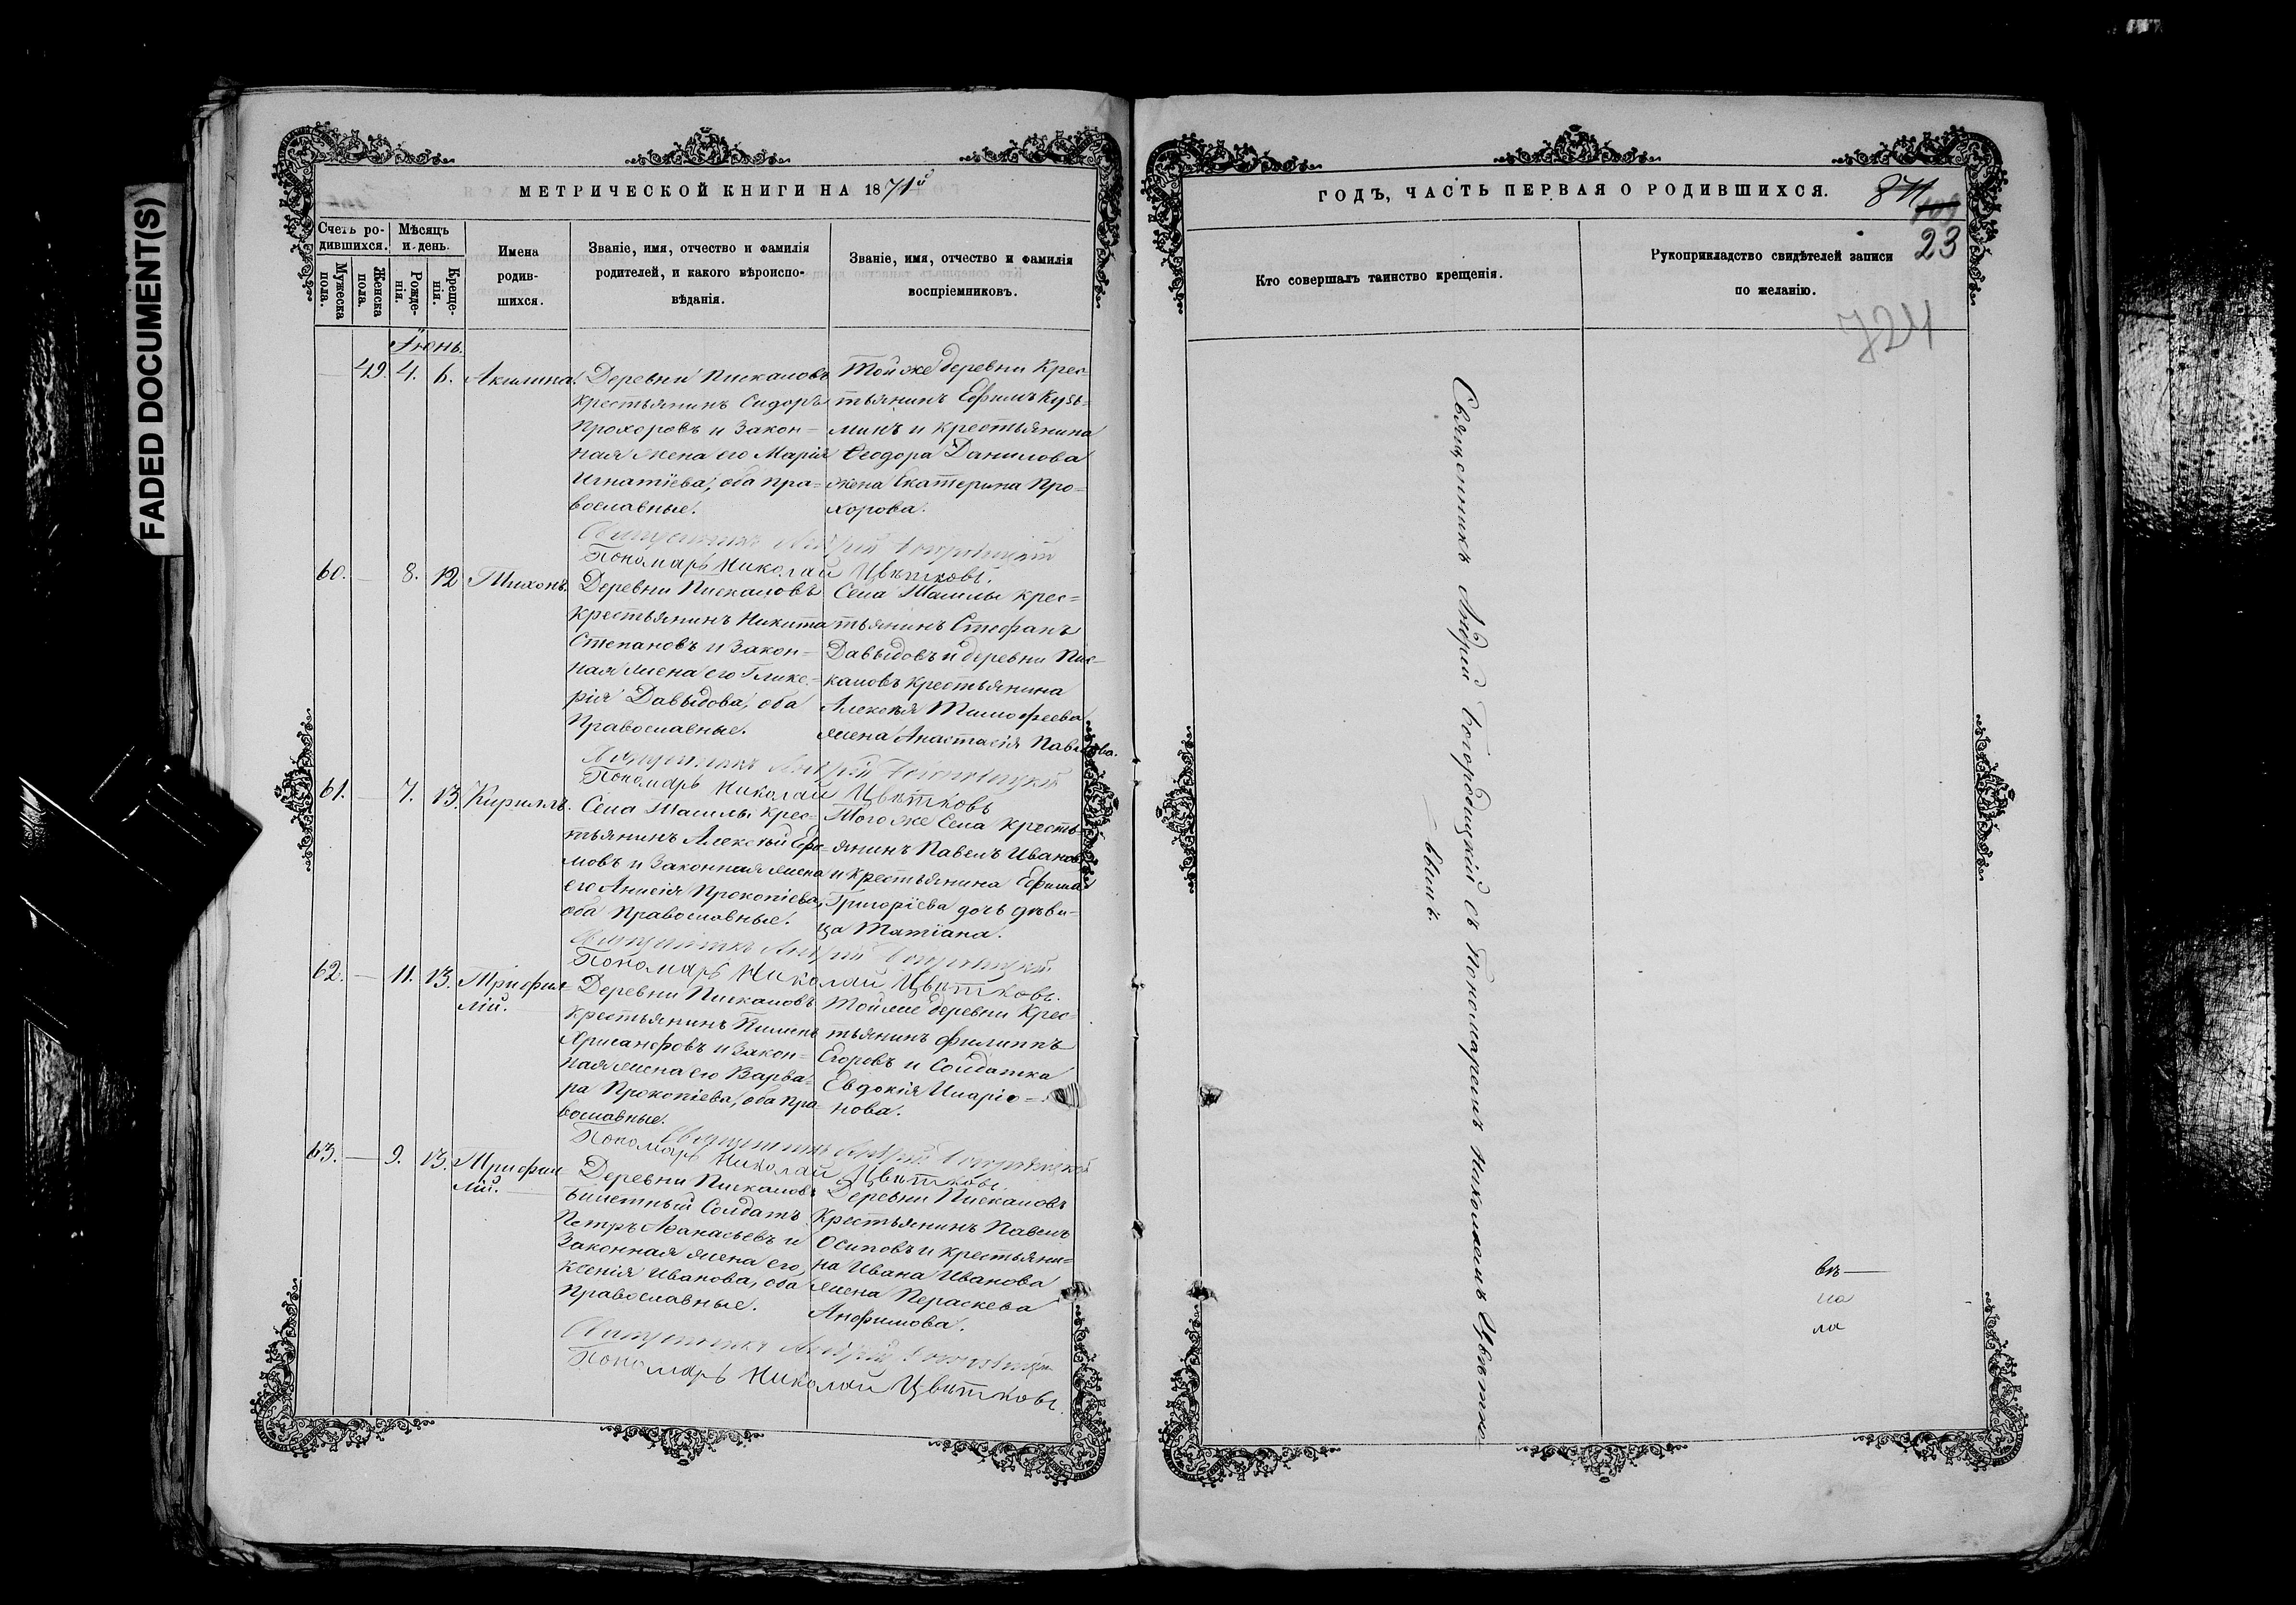 FADED DOCUMENT(S)
МЕТРИЧЕСКОЙ КНИГИ НА 1871й
Счетъ ро-
дившихся.
Мѣсяцъ
и день.
Мужеска
пола.
Женска
пола.
Рожде-
нія.
Креще-
нія.
Имена
родив-
шихся.
Званіе, имя, отчество и фамилія
родителей, и какого вѣроиспо-
вѣданія.
Званіе, имя, отчество и фамилія
воспріемниковъ.
Іюнь.
49. 4. 6. Акилина.
Деревни Пискаловъ
Крестьянинъ Сидоръ
Прохоровъ и Закон-
ная жена его Марія
Игнатіева, оба пра=
вославные.
Той же деревни Крес-
тьянинъ Ефимъ Кузь=
минъ и крестьянина
Ѳеодора Данилова
жена Екатерина Про=
хорова.
Священникъ Андрей Богородицкій
Пономарь Николай Цвѣтковъ.
60. — 8. 12 Тихонъ.
Деревни Пискаловъ
Крестьянинъ Никита
Степановъ и Закон=
ная жена его Глике=
рія Давыдова, оба
Православные.
Села Ташлы крес=
тьянинъ Стефанъ
Давыдовъ и деревни Пис-
каловъ крестьянина
Алексѣя Тимофеева
жена Анастасія Павлова.
Священникъ Андрей Богородицкій
Пономарь Николай Цвѣтковъ
61. — 7. 13. Кириллъ.
Села Ташлы Крес=
тьянинъ Алексѣй Ефи=
мовъ и Законная жена
его Анисія Прокопіева,
оба Православные.
Того же Села кресть-
янинъ Павелъ Ивановъ
и крестьянина Ефима
Григоріева дочь дѣви=
ца Татіана.
Священникъ Андрей Богородицкій
Пономарь Николай Цвѣтковъ.
62. — 11. 13. Трифил=
лій.
Деревни Пискаловъ
Крестьянинъ Пименъ
Хрисанфовъ и Закон=
ная жена его Варва=
ра Прокопіева, оба Пра-
вославные.
Той же деревни Крес=
тьянинъ Филиппъ
Егоровъ и Солдатка
Евдокія Иларіо=
нова.
Священникъ Андрей Богородицкій
Пономарь Николай Цвѣтковъ.
63. — 9. 13. Трифил=
лій.
Деревни Пискаловъ
Билетный Солдатъ
Петръ Аѳанасьевъ и
Законная жена его,
Ксенія Иванова, оба
Православные.
Деревни Пискаловъ
Крестьянинъ Павелъ
Осиповъ и крестьяни=
на Ивана Иванова
жена Пераскева
Анфимова.
Священникъ Андрей Богородицкій
Пономарь Николай Цвѣтковъ.
ГОДЪ, ЧАСТЬ ПЕРВАЯ О РОДИВШИХСЯ.
23
Кто совершалъ таинство крещенія.
Рукоприкладство свидѣтелей записи
по желанію.
724
Священникъ Андрей Богородицкій съ Пономаремъ Николаемъ Цвѣтко-
— вымъ.